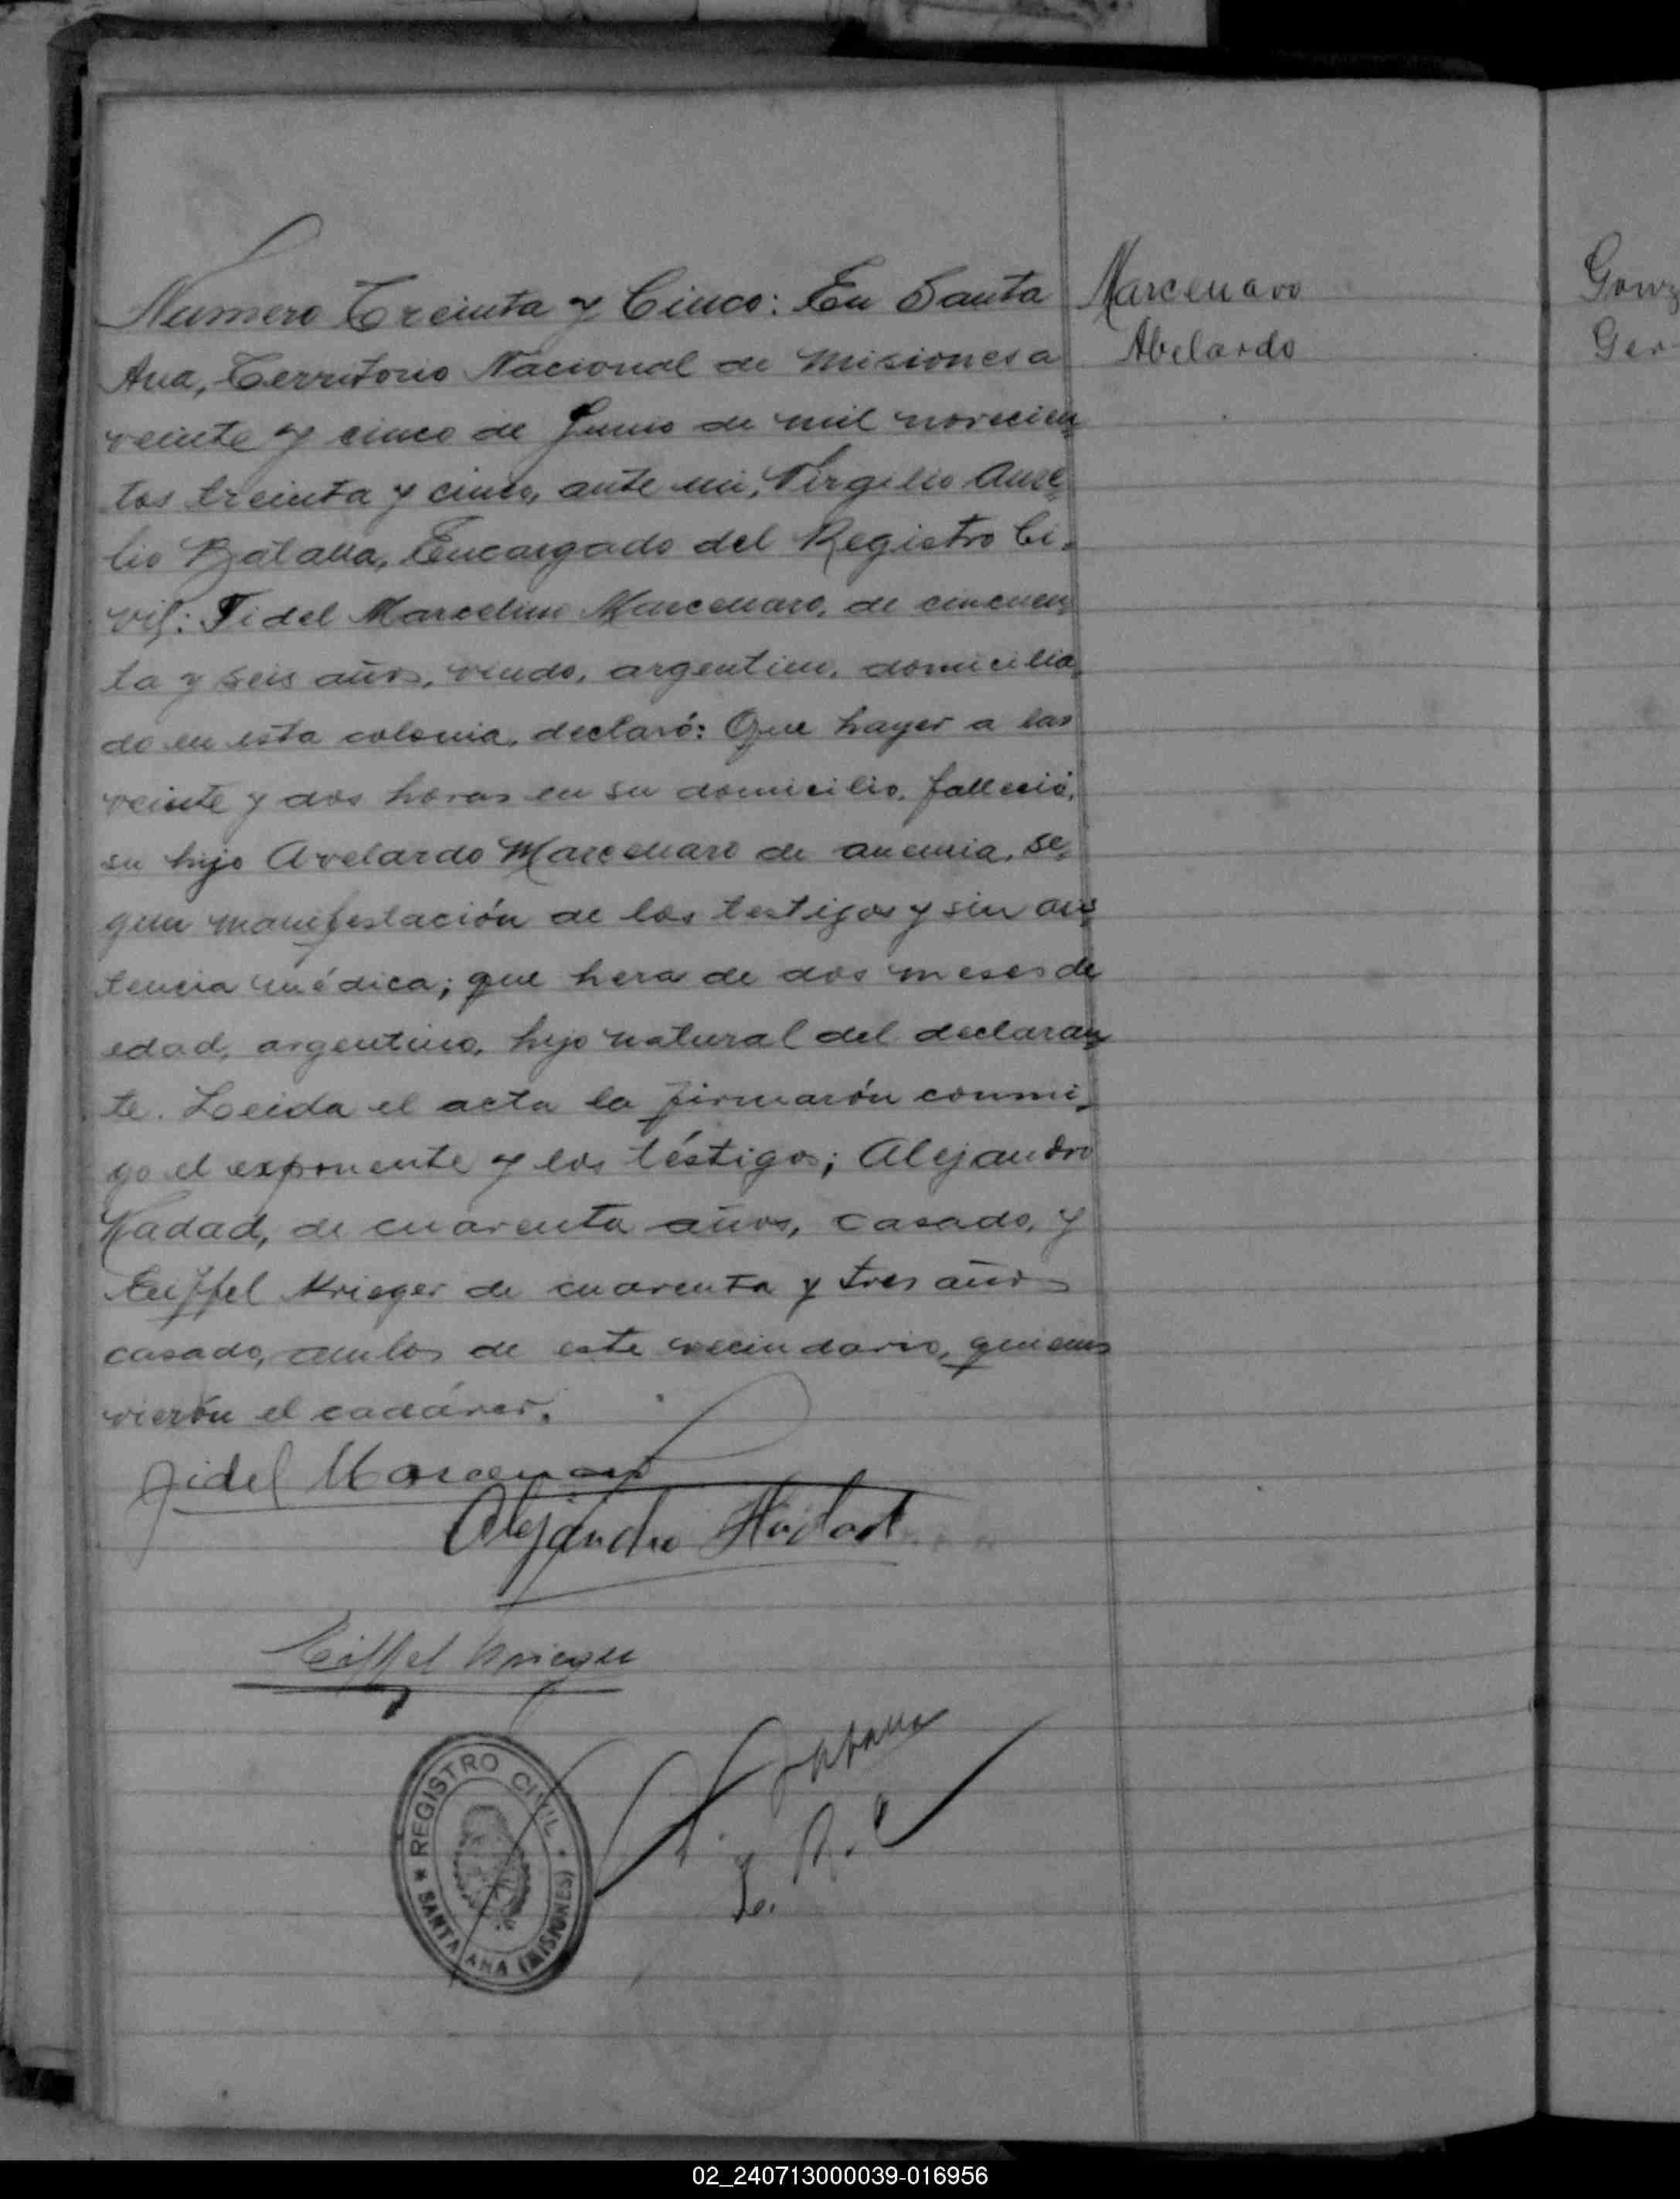 Numero Treinta y Cinco: En Santa
Ana, Territorio Nacional de Misiones a
veinte y cinco de Junio de mil novecien
tos treinta y cinco, ante mi, Virgilio Aure
lio Batalla, Encargado del Registro Ci-
vil: Fidel Marcelino Marcenaro, de cincuen
ta y seis años, viudo, argentino, domicilia
do en esta colonia, declaró: Que hayer a las
veinte y dos horas en su domicilio, falleció,
su hijo Avelardo Marcenaro de anemia, se-
gun manifestación de los testigos y sin asis
tencia médica; que hera de dos meses de
edad, argentino, hijo natural del declaran
te. Leida el acta la firmarón conmi-
go el exponente y los téstigos; Alejandro
Hadad, de cuarenta años, casado, y
Eiffel Krieger de cuarenta y tres años
casado, ambos de este vecindario, quienes
vierón el cadáver.
Fidel Marcenaro
Alejandro Hadad
Eiffel Krieger
E. R. C
REGISTRO CIVIL
* SANTA ANA (MISIONES) *
Marcenaro
Abelardo
Gonz
Ger
02_240713000039-016956